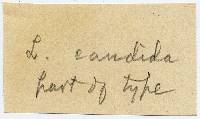 L. candida
part of type